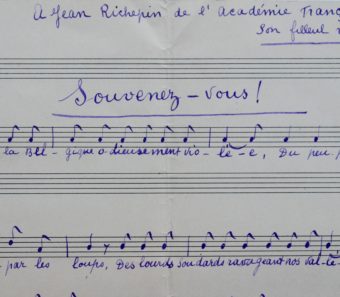 A Jean Richepin de l'Académie Franç
Son filleul
Souvenez-vous!
la Bel-gique odieusement vio-lé-e, Du peu-p
par les loups, Des lourds soudards ravageant nos val-lé